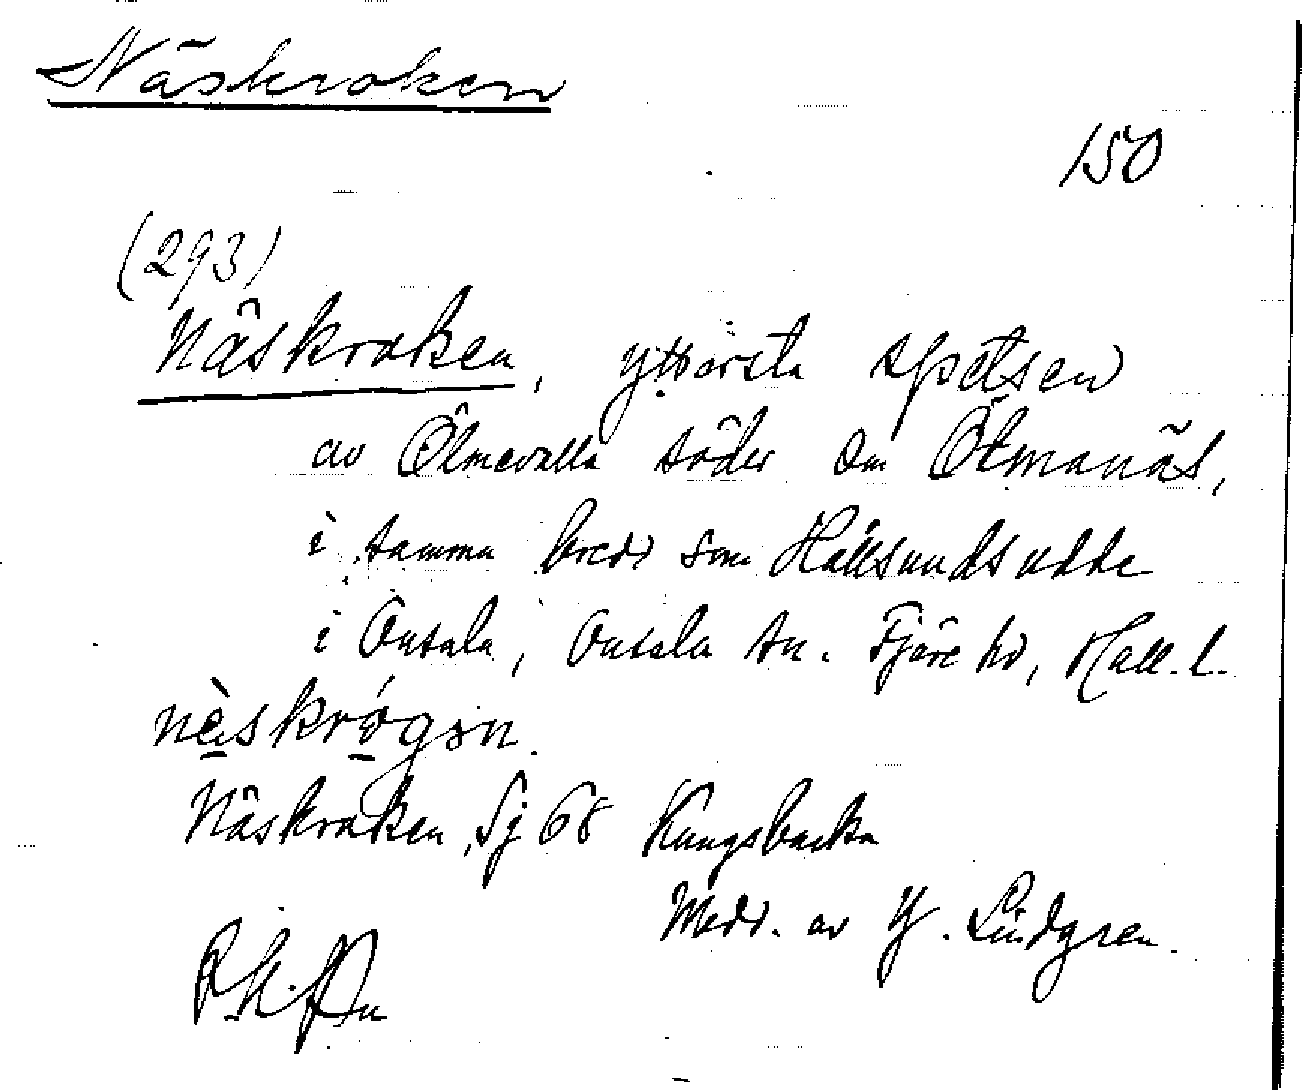 Näskroken
150
(293)
Näskroken, yttersta spetsen
av Ölmevalla söder om Ölmanäs,
i samma bredd som Hållsundsudde
i Onsala, Onsala sn. Fjäre hd, Hall. l.
nèskrógən.
Näskroken, Sj 68 Kungsbacka
Medd. av Y. Lindgren.